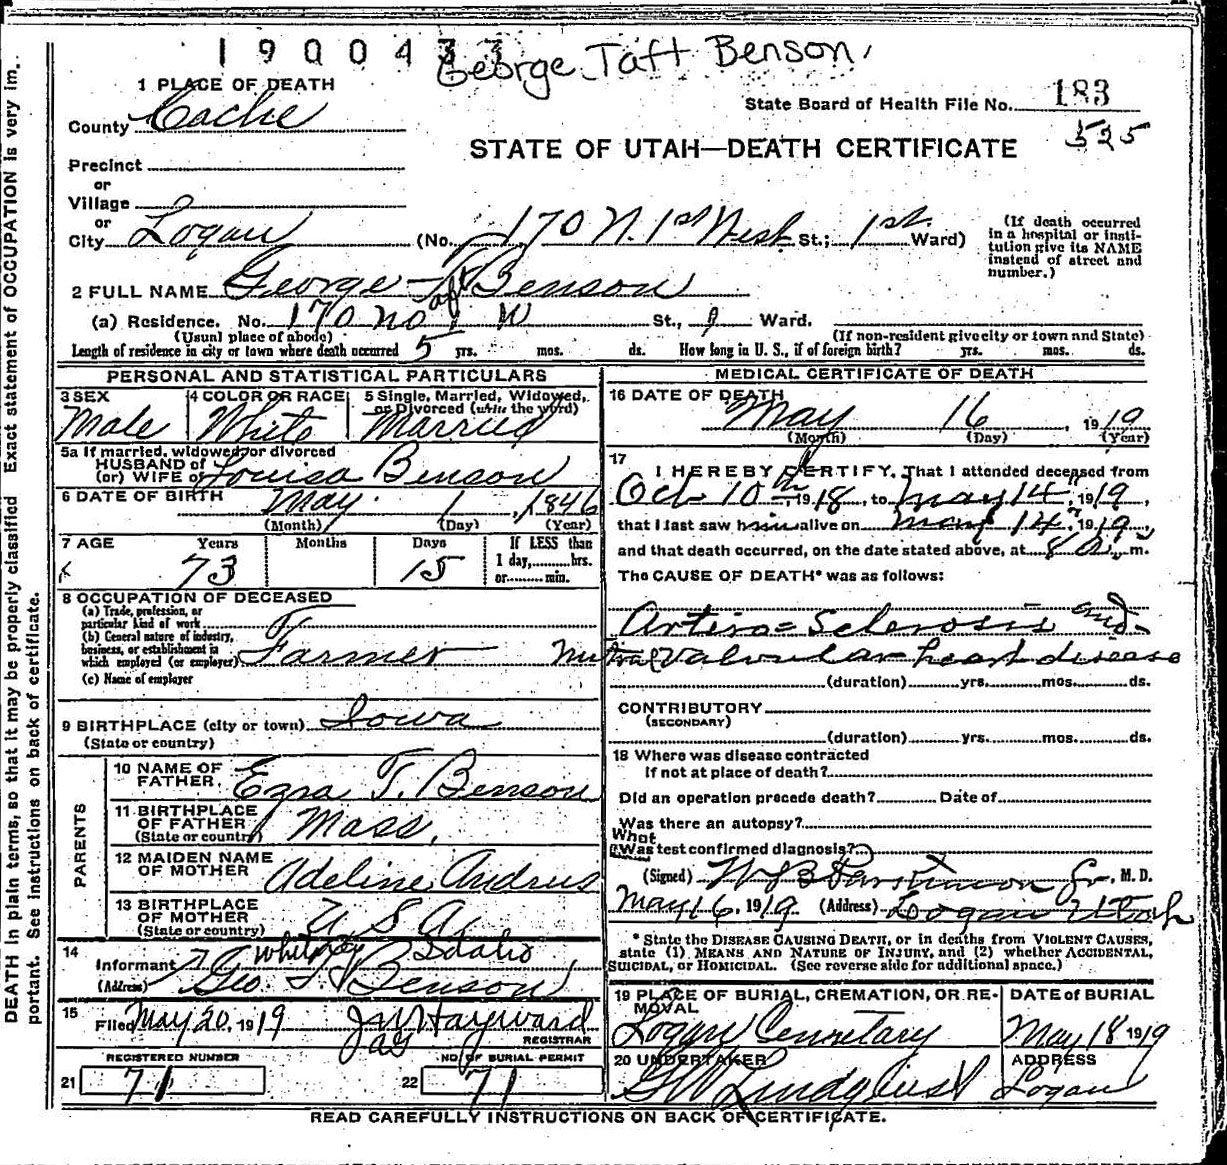 1900433
George Taft Benson
1 PLACE OF DEATH
State Board of Health File No. 183
County Cache
525
STATE OF UTAH—DEATH CERTIFICATE
Precinct
or
Village
or
City Logan (No. 170 N. 1st West St.; 1st Ward)
(If death occurred in a hospital or institution give its NAME instead of street and number.)
2 FULL NAME George Taft Benson
(a) Residence. No. 170 No 1 W St., Ward.
(Usual place of abode) (If non-resident give city or town and State)
Length of residence in city or town where death occurred 5 yrs. mos. ds. How long in U. S., if of foreign birth? yrs. mos. ds.
PERSONAL AND STATISTICAL PARTICULARS
3 SEX Male
4 COLOR OR RACE White
5 Single, Married, Widowed, or Divorced (write the word) Married
5a If married, widowed, or divorced
HUSBAND of
(or) WIFE of Louisa Benson
6 DATE OF BIRTH May 1, 1846
(Month) (Day) (Year)
7 AGE Years 73 Months Days 15 If LESS than 1 day, hrs. or min.
8 OCCUPATION OF DECEASED
(a) Trade, profession, or particular kind of work
(b) General nature of industry, business, or establishment in which employed (or employer) Farmer
(c) Name of employer
9 BIRTHPLACE (city or town) Iowa
(State or country)
PARENTS
10 NAME OF FATHER Ezra T. Benson
11 BIRTHPLACE OF FATHER (State or country) Mass.
12 MAIDEN NAME OF MOTHER Adeline Andrus
13 BIRTHPLACE OF MOTHER (State or country) U S A
14 Informant Geo. T. Benson
(Address) Whitney Idaho
15 Filed May 20, 1919 J M Hayward
REGISTRAR
REGISTERED NUMBER
21 71
NO. OF BURIAL PERMIT
22 71
MEDICAL CERTIFICATE OF DEATH
16 DATE OF DEATH May 16, 1919
(Month) (Day) (Year)
17 I HEREBY CERTIFY, That I attended deceased from
Oct 10th, 1918, to May 14, 1919,
that I last saw him alive on May 14, 1919,
and that death occurred, on the date stated above, at 8 a. m.
The CAUSE OF DEATH* was as follows:
Artirio=Sclerosis and
mitral Valvular heart disease
(duration) yrs. mos. ds.
CONTRIBUTORY
(SECONDARY)
(duration) yrs. mos. ds.
18 Where was disease contracted
If not at place of death?
Did an operation precede death? Date of
Was there an autopsy?
What
Was test confirmed diagnosis?
(Signed) Jr., M. D.
May 16, 1919 (Address) Logan Utah
* State the DISEASE CAUSING DEATH, or in deaths from VIOLENT CAUSES, state (1) MEANS AND NATURE OF INJURY, and (2) whether ACCIDENTAL, SUICIDAL, or HOMICIDAL. (See reverse side for additional space.)
19 PLACE OF BURIAL, CREMATION, OR REMOVAL Logan Cemetary
DATE of BURIAL May 18 1919
20 UNDERTAKER
ADDRESS Logan
READ CAREFULLY INSTRUCTIONS ON BACK OF CERTIFICATE.
DEATH in plain terms, so that it may be properly classified Exact statement of OCCUPATION is very im.
portant. See instructions on back of certificate.